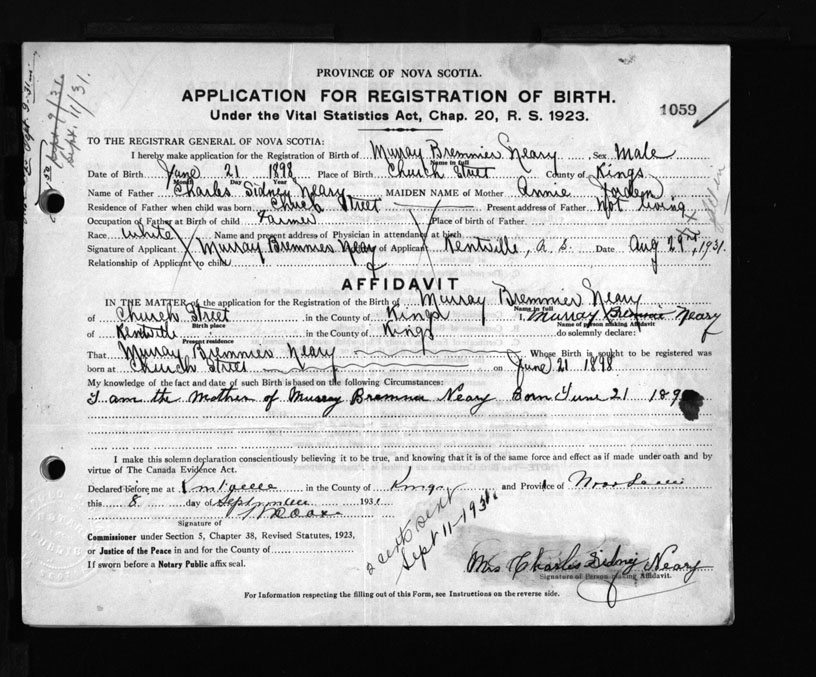 PROVINCE OF NOVA SCOTIA.
APPLICATION FOR REGISTRATION OF BIRTH.
Under the Vital Statistics Act, Chap. 20, R. S. 1923.
1059
TO THE REGISTRAR GENERAL OF NOVA SCOTIA:
I hereby make application for the Registration of Birth of Murray Bremmier Neary Sex Male
Name in full
Date of Birth June 21 1898 Place of Birth Church Street County of Kings
Month Day Year
Name of Father Charles Sidney Neary MAIDEN NAME of Mother Annie Jordem
Residence of Father when child was born Church Street Present address of Father Not living
Occupation of Father at Birth of child Farmer Place of birth of Father
Race white Name and present address of Physician in attendance at birth
Signature of Applicant Murray Bremmier Neary of Applicant Kentville, N. S. Date Aug 29 1931.
Relationship of Applicant to child
AFFIDAVIT
IN THE MATTER of the application for the Registration of the Birth of Murray Bremmier Neary
Name in full
of Church Street in the County of Kings I, Murray Bremmie Neary
Birth place Name of person making Affidavit
of Kentville in the County of Kings do solemnly declare:
Present residence
That Murray Bremmier Neary Whose Birth is sought to be registered was
born at Church Street on June 21 1898
My knowledge of the fact and date of such Birth is based on the following Circumstances:
I am the Mother of Murray Bremmer Neary Born June 21 189
I make this solemn declaration conscientiously believing it to be true, and knowing that it is of the same force and effect as if made under oath and by
virtue of The Canada Evidence Act.
Declared before me at in the County of Kings and Province of Nova Scotia
this 8 day of September 1931
Signature of
Commissioner under Section 5, Chapter 38, Revised Statutes, 1923,
or Justice of the Peace in and for the County of
If sworn before a Notary Public affix seal.
Sept 11-1931
Mrs Charles Sidney Neary
Signature of Person making Affidavit.
For Information respecting the filling out of this Form, see Instructions on the reverse side.